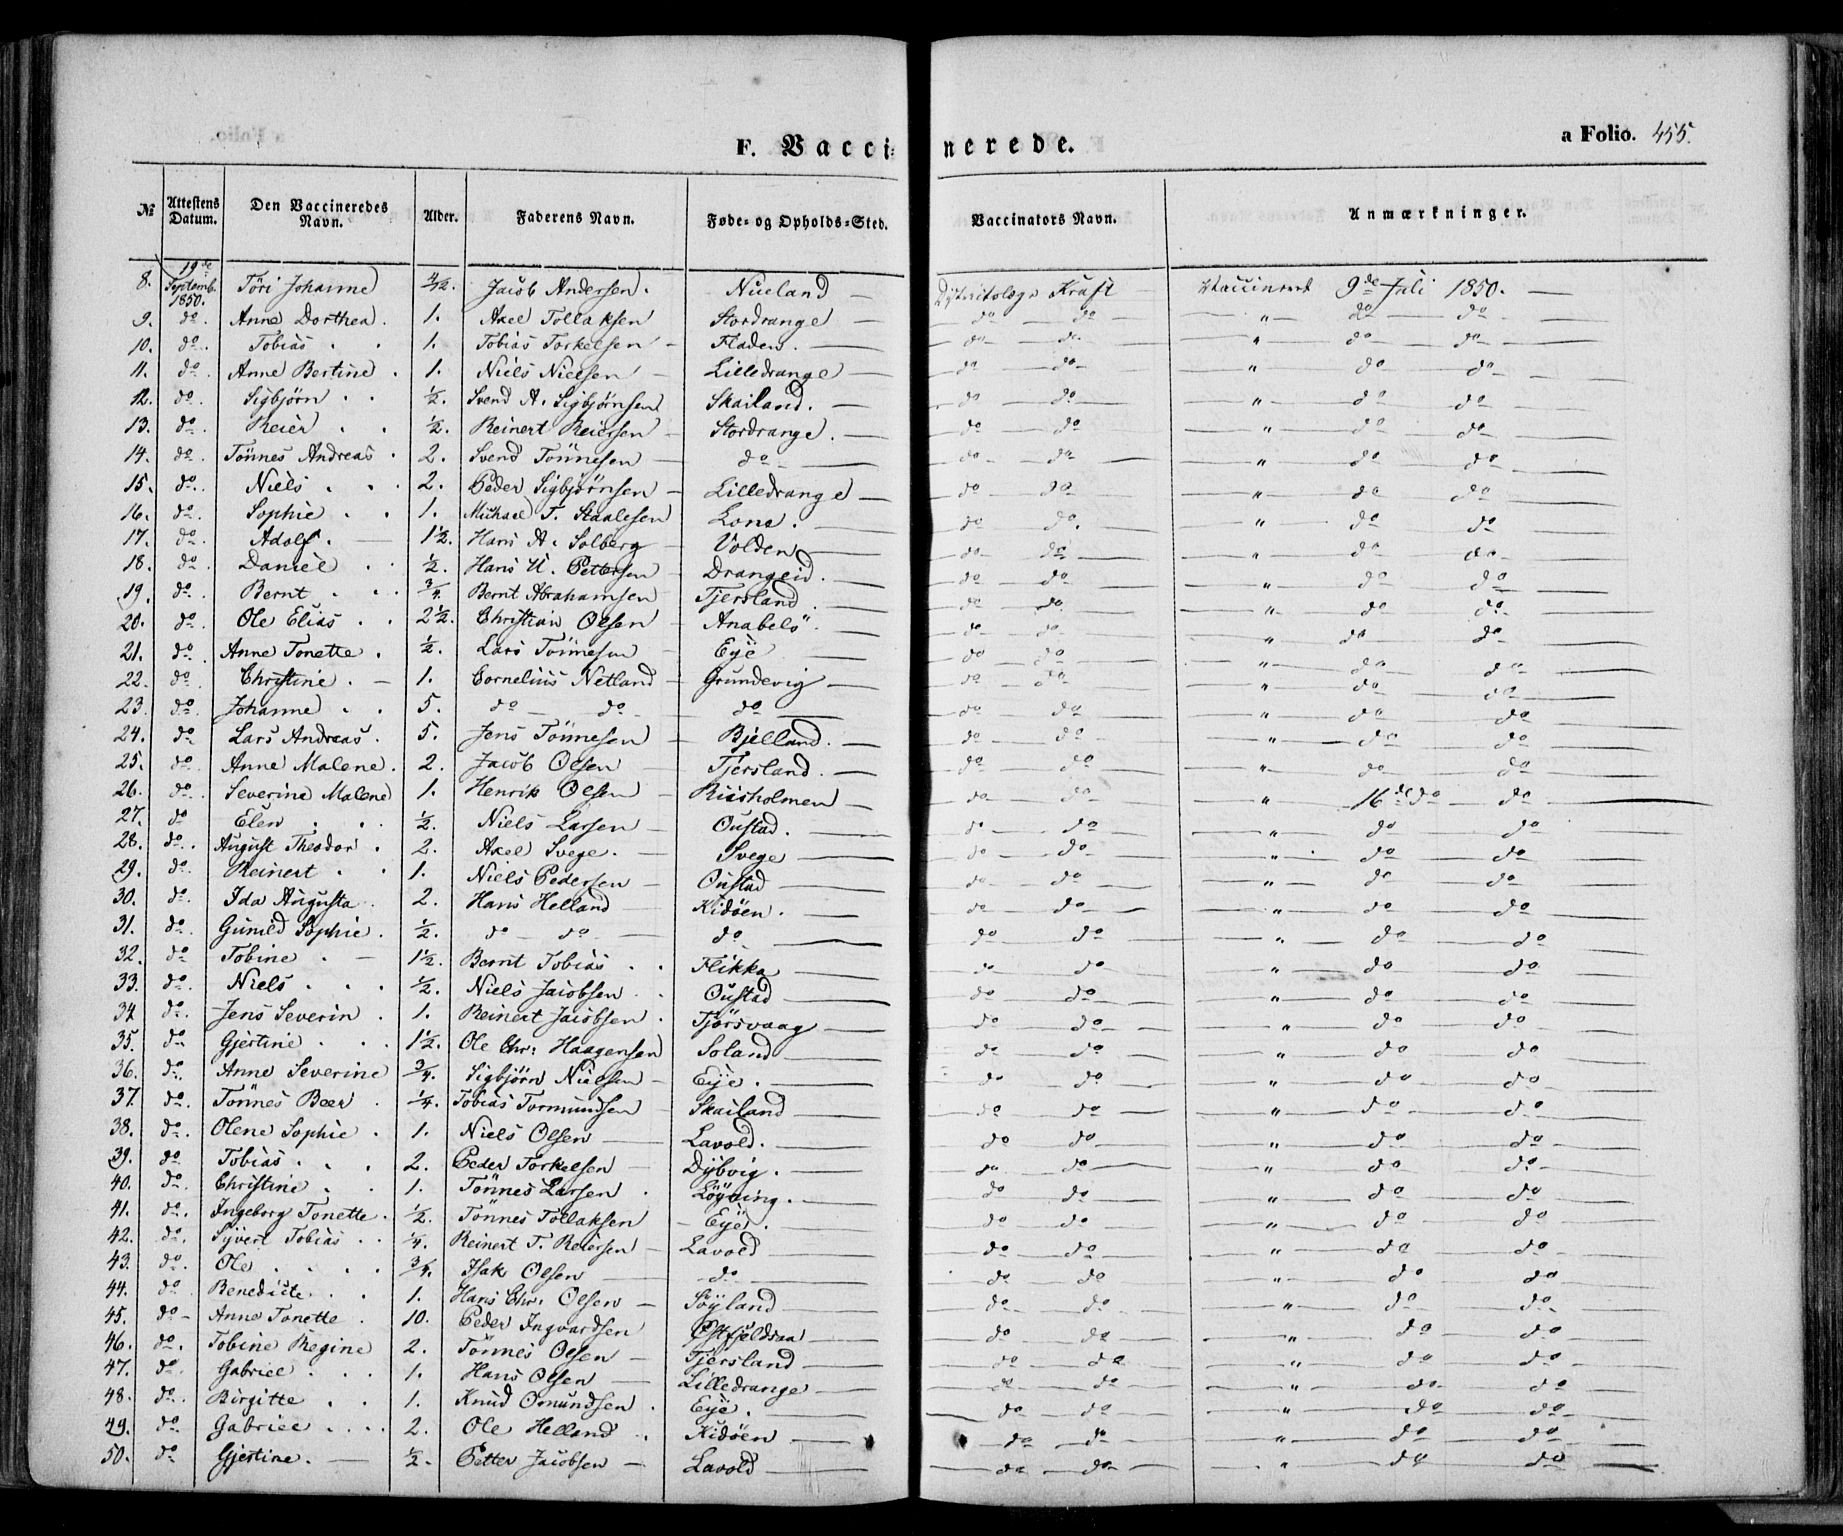 F. Vaccinerede. a Folio. 455.
№ Attestens Datum. Den Vaccineredes Navn. Alder. Faderens Navn. Føde- og Opholds-Sted. Vaccinators Navn. Anmærkninger.
8. 19de Septemb. 1850. Töri Johanne Jacob Andersen. Nueland — Kraft Vaccineret 9de Juli 1850. —
9. do. Anne Dorthea. 1. Axel Tollaksen Stordrange — do do — " — do do —
10. do. Tobias . . 1. Tobias Torkelsen — Fladen. — do do — " — do do —
11. do. Anne Bertine . 1. Niels Nielsen — Lilledrange — do do — " — do do —
12. do. Sigbjörn . . ½. Svend A. Sigbjörnsen Skailand. — do do — " — do do —
13. do. Reier . . ½. Reinert Reiersen — Stordrange. — do do — " — do do —
14. do. Tönnes Andreas . 2. Svend Tönnesen — do — do do — " — do do —
15. do. Niels . . . 2. Peder Sigbjörnsen — Lilledrange — do do — " — do do —
16. do. Sophie . . 1. Michael T. Staalesen Lone. — do do. — " — do do —
17. do. Adolf. — 1½. Hans A. Solberg — Volden — do do — " — do do —
18. do. Daniel . . ½. Hans U. Pettersen — Drangeid. — do do — " — do do —
19. do. Bernt . . . ¾. Bernt Abrahamsen — Tjersland. — do do — " — do do —
20. do. Ole Elias . . 2½. Christian Olsen — Anabelö. — do do — " — do do —
21. do. Anne Tonette . ½. Lars Tönnesen — Eÿe — do do — " — do do —
22. do. Christine . — 1. Cornelius Netland — Grundevig — do do — " — do do —
23. do. Johanne . . 5. do — do — do — do do — " — do do —
24. do. Lars Andreas . 5. Jens Tönnesen — Bjelland. — do do — " — do do —
25. do. Anne Malene . 2. Jacob Olsen — Tjersland. — do do — " — do do —
26. do. Severine Malene 1. Henrik Olsen — Riisholmen — do do — " — 16de do — do —
27. do Elen . . . ½. Niels Larsen — Oustad. — do do — " — do do —
28. do. August Theodor . 2. Axel Svege. — Svege — do do — " — do do —
29. do. Reinert . . 1. Niels Pedersen — Oustad — do do — " — do do —
30. do. Ida Augusta . 2. Hans Helland — Kidöen. — do do — " — do do —
31. do. Gunild Sophie . ½. do — do — do. — do do — " — do do —
32. do Tobine . — 1½. Bernt Tobias . . Flikka — do do — " — do do —
33. do. Niels . . . ½. Niels Jacobsen . . Oustad — do do — " — do do —
34 do. Jens Severin . 1. Reinert Jacobsen . Tjörsvaag — do do — " — do do —
35. do Gjertine . . . 1½. Ole Chr: Haagensen Soland — do do — " — do do —
36. do. Anne Severine ¾. Sigbjörn Nielsen — Eÿe. — do do — " — do do —
37. do. Tönnes Beer . ¼. Tobias Tormundsen — Skailand — do do — " — do do —
38. do. Olene Sophie . 1. Niels Olsen — Lavold. — do do — " — do do —
39. do Tobias . . . 2. Peder Torkelsen — Dÿbvig. — do do — " — do do —
40. do. Christine . . 1. Tönnes Larsen . Löÿning. — do do — " — do do —
41. do. Ingeborg Tonette . ½. Tönnes Tollaksen — Eÿe. — do do — " — do do —
42. do. Sÿvert Tobias . . ¼. Reinert T. Reiersen — Lavold — do do — " — do do —
43. do. Ole . . . . ¾. Isak Olsen — do — do do — " — do do —
44. do Benedicte . . 1. Hans Chr. Olsen — Söÿland — do do — " — do do —
45. do — Anne Tonette . 10. Peder Ingvardsen Östfjeldsaa — do do — " — do do —
46. do. Tobine Regine 2. Tönnes Olsen — Tjersland — do do — " — do do —
47. do Gabriel . . . 1. Hans Olsen — Lilledrange — do do — " — do do —
48. do. Birgitte . . 1. Knud Omundsen . Eÿe. — do do — " — do do —
49. do Gabriel . . . . 2. Ole Helland . . Kidöen — do do — " — do do —
50. do Gjertine. — ½. Petter Jacobsen — Lavold — do do — " — do do —